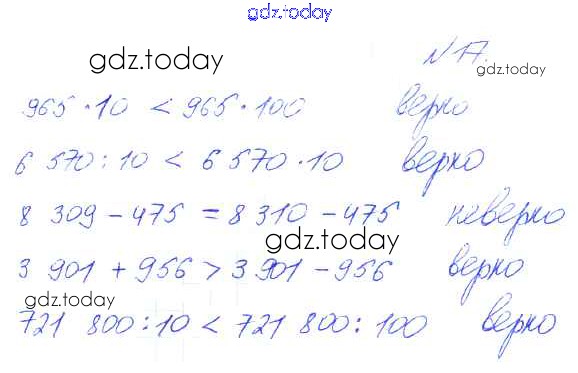 gdz.today
gdz.today
№ 17.
gdz.today
965 · 10 < 965 · 100 верно
6 570 : 10 < 6 570 · 10 верно
8 309 - 475 = 8 310 - 475 неверно
gdz.today
3 901 + 956 > 3 901 - 956 верно
gdz.today
721 800 : 10 < 721 800 : 100 верно